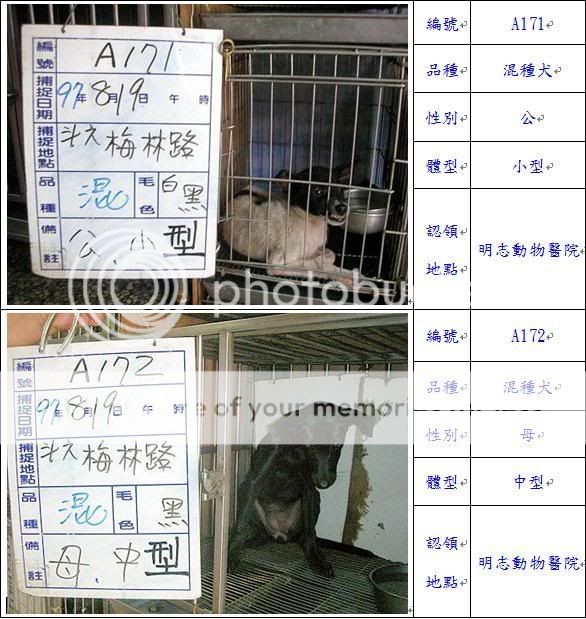 編號
A171
捕捉日期
97年8月19日 午 時
捕捉地點
斗六梅林路
品種
混
毛色
白黑
備註
公、小型
編號 A171
品種 混種犬
性別 公
體型 小型
認領地點 明志動物醫院
photobu
編號
A172
捕捉日期
97年8月19日 午 時
捕捉地點
斗六梅林路
品種
混
毛色
黑
備註
母、中型
編號 A172
品種 混種犬
性別 母
體型 中型
認領地點 明志動物醫院
e of your memor